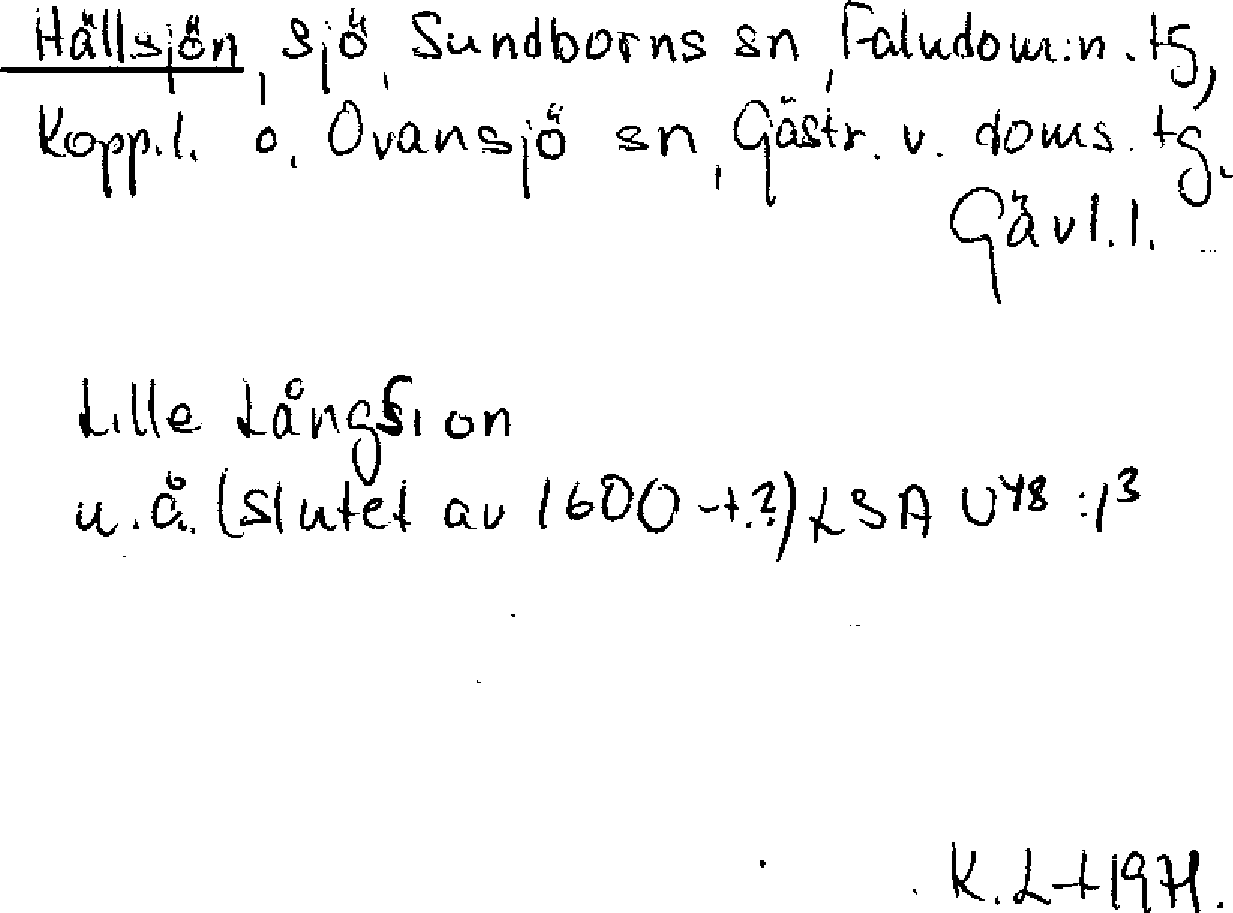 Hällsjön, sjö, Sundborns sn, Faludom:n. tg,
Kopp.l. o. Ovansjö sn, Gästr. v. doms. tg.
Gävl.l.
Lille Långsion
u.å. (slutet av 1600-t.?) LSA U48:13
K.L-t